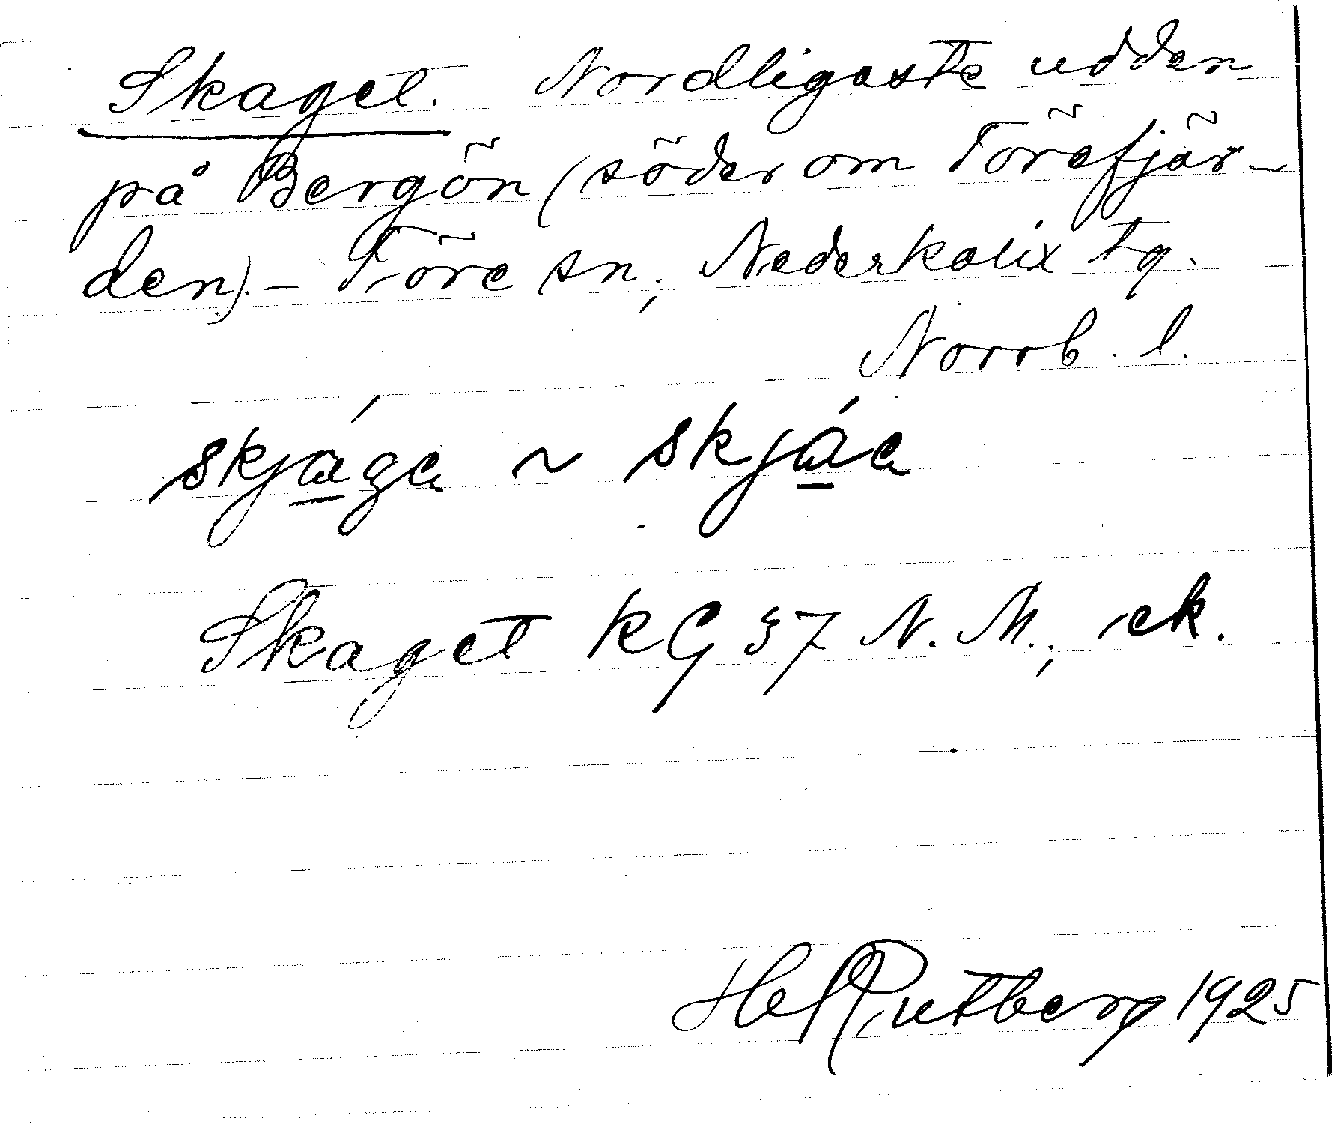 Skaget. Nordligaste udden
på Bergön (söder om Törefjär-
den). – Töre sn, Nederkalix tg.
Norrb. l.
skjága ~ skjáa
Skaget KG 37 N. M., ek.
Hel Rutberg 1925